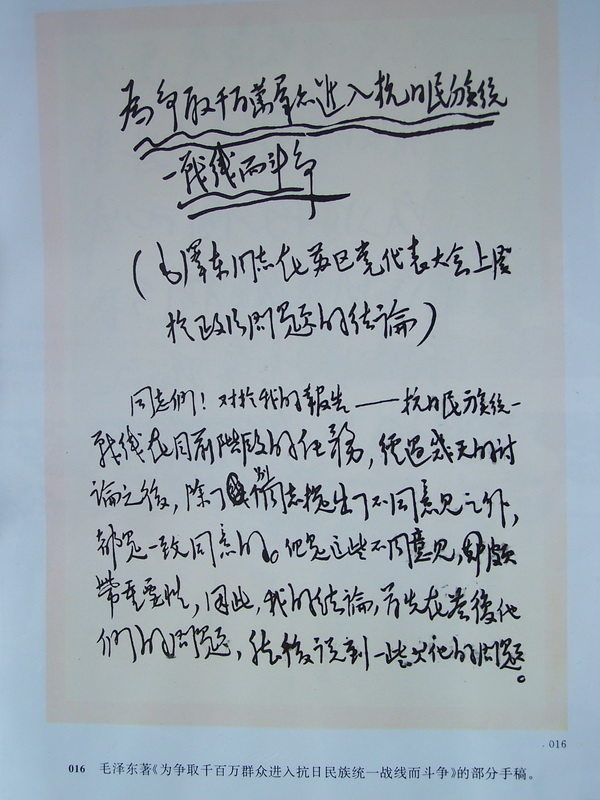 為争取千百萬羣众進入抗日民族统
一战线而斗争
(毛澤东同志在苏区党代表大会上関
於政治問题的结論)
同志們！对於我的報告——抗日民族统一
戰线在目前階段的任務，经過幾天的讨
論之後，除了個别同志提出了不同意見之外，
都是一致同意的。但是這些不同意見，却頗
帶重要性，因此，我的结論，首先在答復他
們的問题，然後说到一些其他的問题。
016
016 毛泽东著《为争取千百万群众进入抗日民族统一战线而斗争》的部分手稿。